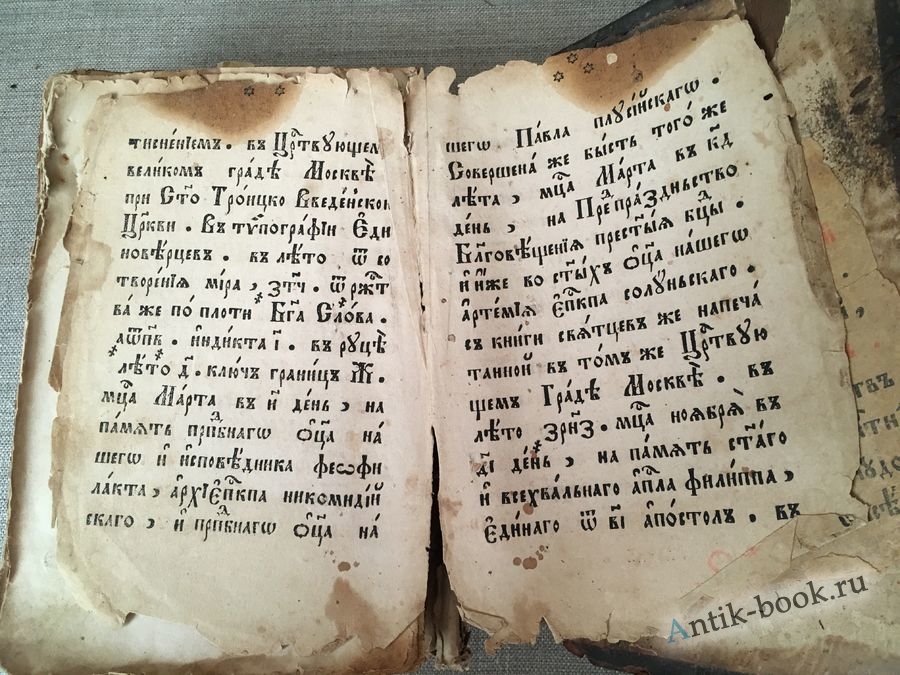 тисне́нїемъ . въ Цр҇твующем
великомъ гра́дѣ Москвѣ
при Ст҃о Тро́ицко Введе́нской
Цр҃кви . Въ тѷпогра́фїи Е҆ди
новѣ́рцевъ . въ лѣ́то ѿ со
творе́нїѧ мі́ра , ҂зт҃ч . ѿ рж҇т
ва́ же по пло́ти Бг҃а Сло́ва .
҂аѡ҃пв . и҆нді́кта і҃ . въ руцѣ̀
лѣ́то д҃ . клю́чъ грани́цъ Ж҃ .
мц҇а Ма́рта въ и҃ де́нь , на
па́мѧть прп҇бнагѡ ѻ҆ц҃а на́
шегѡ и҆ и҆сповѣ́дника ѳеѡфи
ла́кта , а҆рхїепⷭ҇кпа никомиді́й
скаго , и҆ прп҇бнагѡ ѻ҆ц҃а на́
шегѡ Па́вла плусі́йскагѡ .
Соверше́на же бы́сть того́же
лѣ́та , мц҇а Ма́рта въ кд҃
де́нь , на Пред̾пра́здньство
Бл҃говѣ́щенїѧ прест҃ы́ѧ бц҇ы .
и҆ и҆́же во ст҃ы́хъ ѻ҆ц҃а на́шегѡ
а҆рте́мїѧ є҆пⷭ҇кпа солу́ньскаго .
съ кни́ги свѧ́тцевъ же напеча́
танной въ то́мъ же Цр҇твую
щемъ Гра́дѣ Москвѣ̀ . въ
лѣ́то ҂зрн҃з . мц҇а ноѧбрѧ̀ въ
д҃і де́нь , на па́мѧть ст҃а́го
и҆ всехва́льнаго а҆пⷭ҇ла фили́ппа ,
є҆ди́наго ѿ в҃і а҆по́столъ . въ
Antik-book.ru